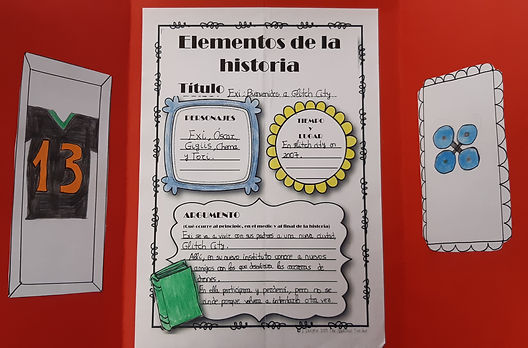 Elementos de la
historia
Título Exi: Bienvenidos a Glitch City
PERSONAJES
Exi, Oscar
Guguis, Chema
y Tori.
TIEMPO
y
LUGAR
En Glitch city en
2007.
ARGUMENTO
(Qué ocurre al principio, en el medio y al final de la historia)
Exi se va a vivir con sus padres a una nueva ciudad
Glitch City.
Allí, en su nuevo instituto conoce a nuevos
amigos con los que descubrirá las carreras de
En ella participará y perderá, pero no se
porque volverá a intentarlo otra vez.
13